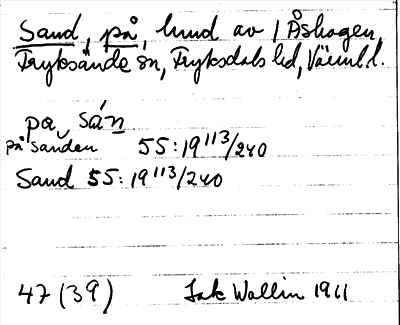 Sand, på, lund av / Åshagen,
Fryksände sn, Fryksdals hd, Värml.l.
pa sán
på sanden 55:19 113/240
Sand 55:19 113/240
47 (39) Jak Wallin 1911